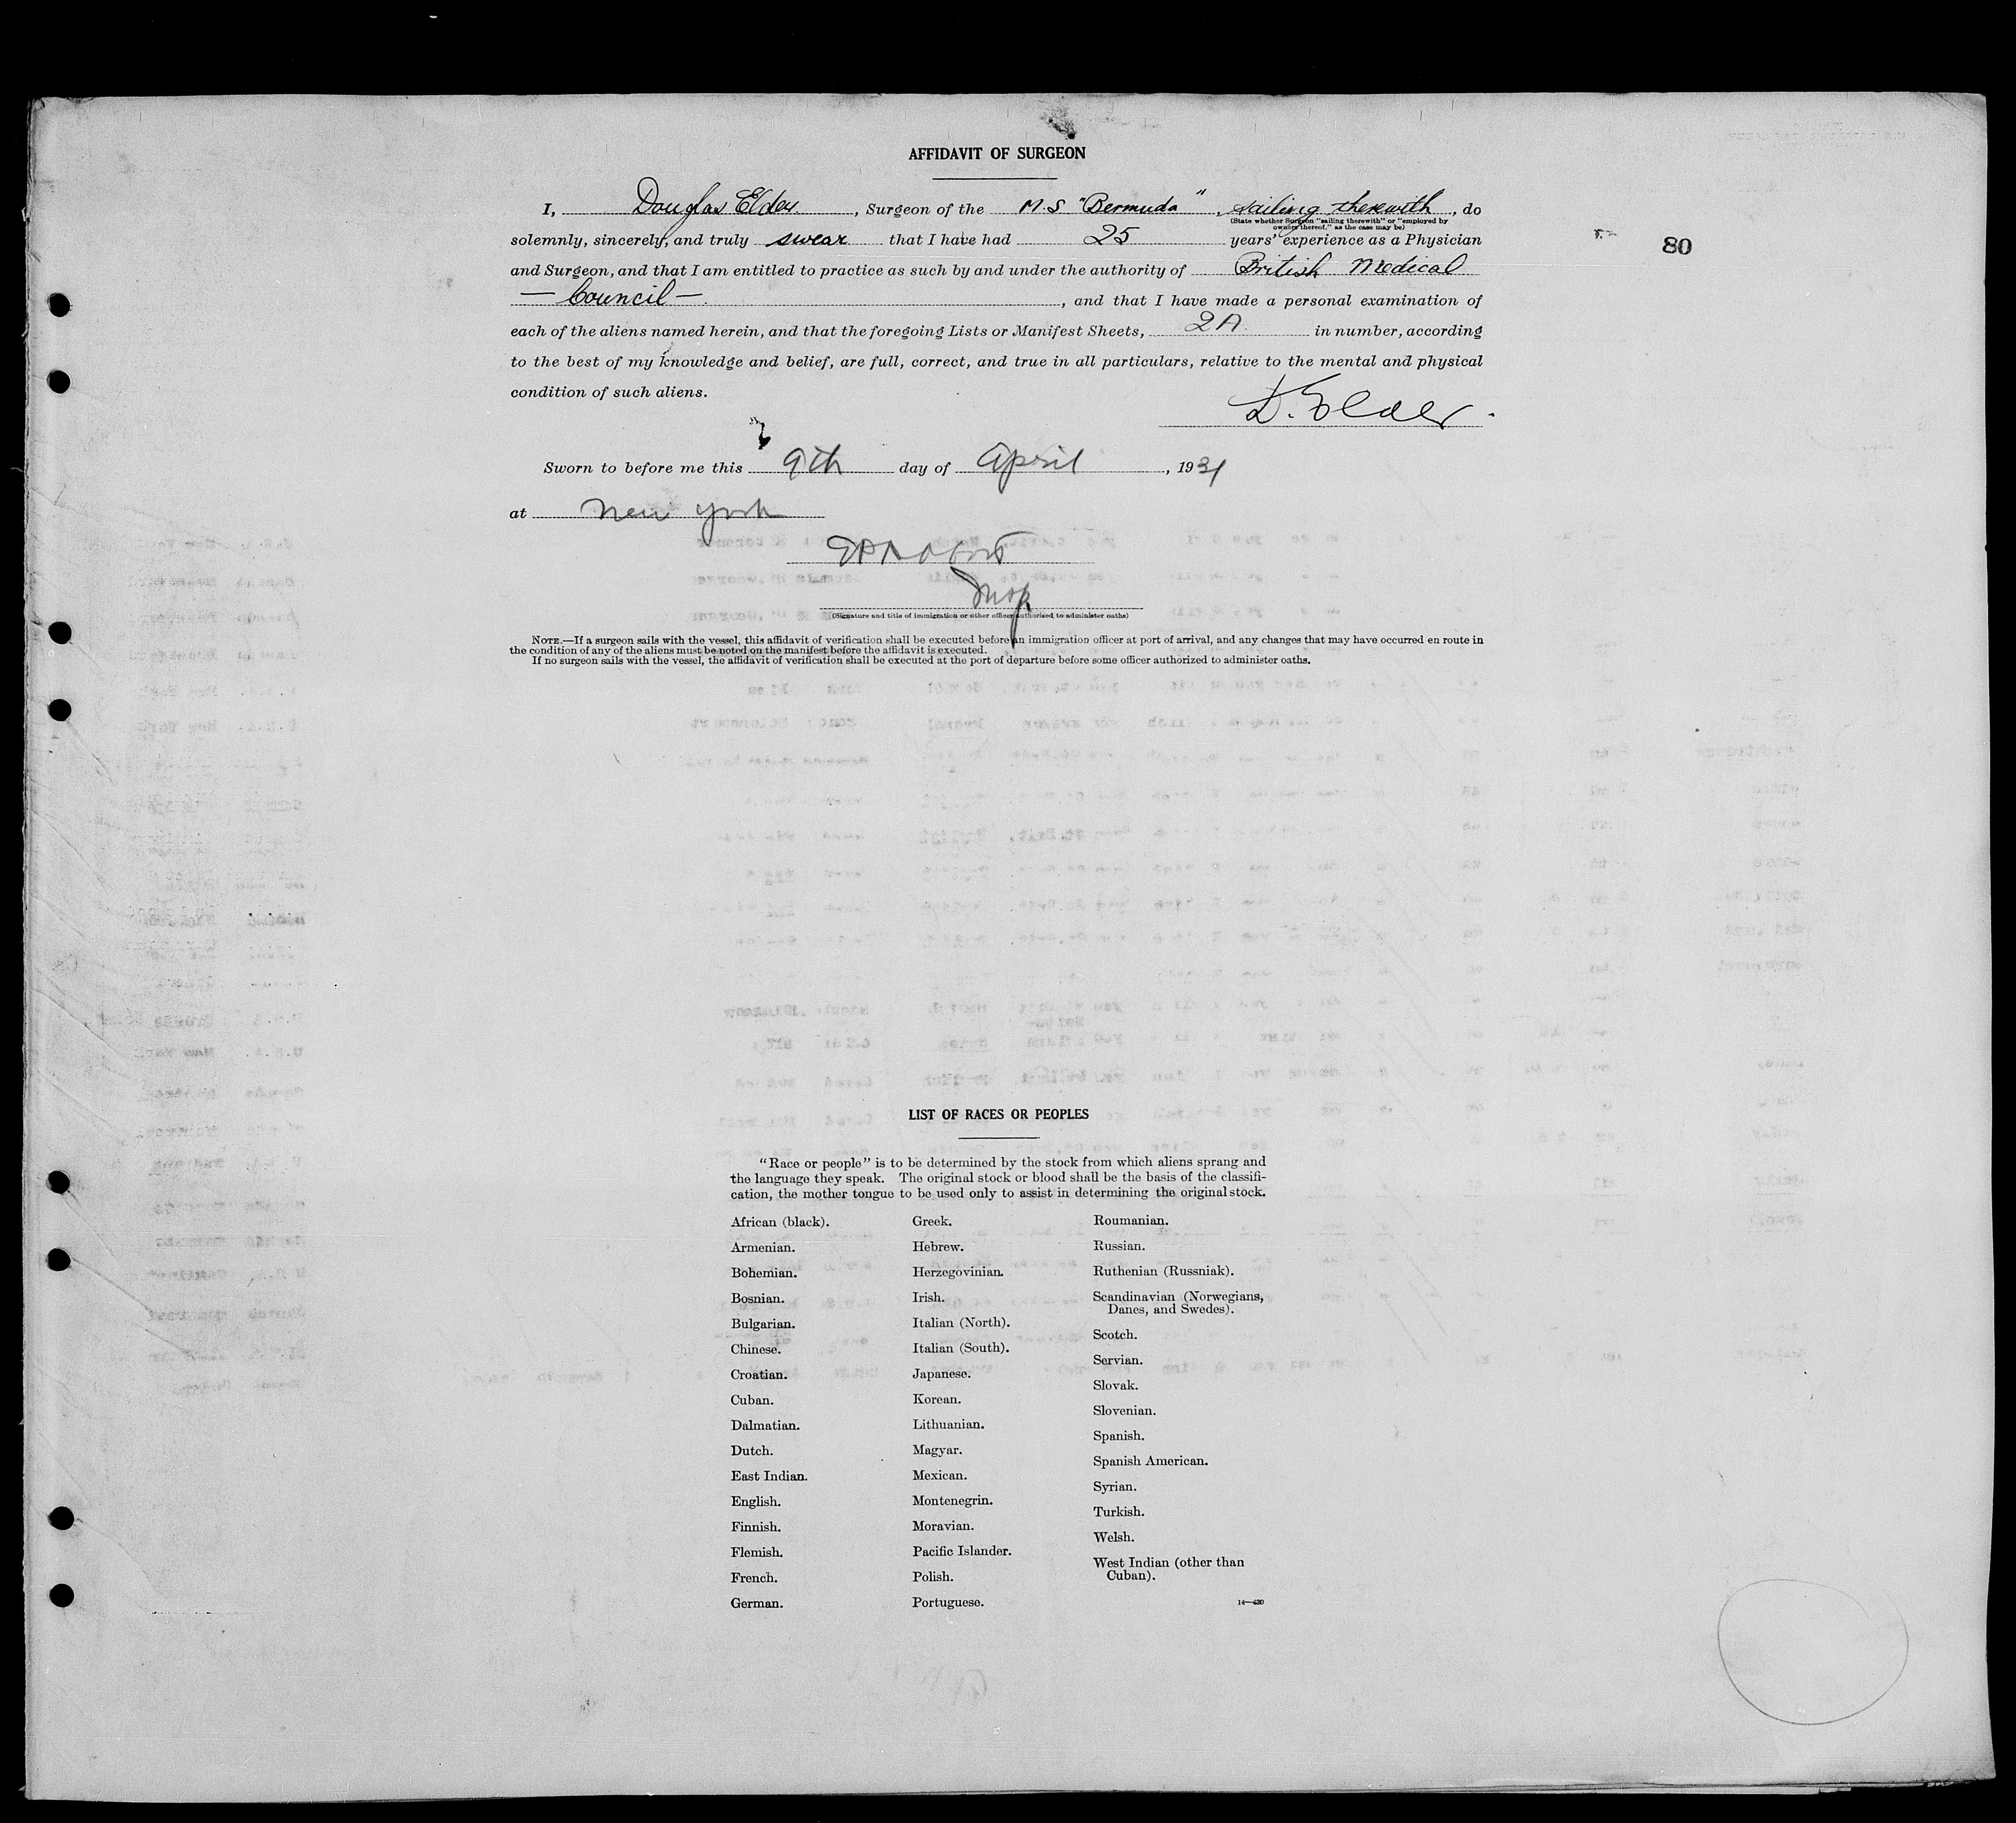 AFFIDAVIT OF SURGEON
I, Douglas Elder, Surgeon of the M.S. "Bermuda", sailing therewith, do
(State whether Surgeon "sailing therewith" or "employed by
owners thereof," as the case may be)
solemnly, sincerely, and truly swear that I have had 25 years' experience as a Physician
80
and Surgeon, and that I am entitled to practice as such by and under the authority of British Medical
— Council —, and that I have made a personal examination of
each of the aliens named herein, and that the foregoing Lists or Manifest Sheets, 2A in number, according
to the best of my knowledge and belief, are full, correct, and true in all particulars, relative to the mental and physical
condition of such aliens.
D. Elder.
Sworn to before me this 9th day of April, 1931
at New York
(Signature and title of immigration or other officer authorized to administer oaths)
NOTE.—If a surgeon sails with the vessel, this affidavit of verification shall be executed before an immigration officer at port of arrival, and any changes that may have occurred en route in
the condition of any of the aliens must be noted on the manifest before the affidavit is executed.
If no surgeon sails with the vessel, the affidavit of verification shall be executed at the port of departure before some officer authorized to administer oaths.
LIST OF RACES OR PEOPLES
"Race or people" is to be determined by the stock from which aliens sprang and
the language they speak. The original stock or blood shall be the basis of the classifi-
cation, the mother tongue to be used only to assist in determining the original stock.
African (black).
Armenian.
Bohemian.
Bosnian.
Bulgarian.
Chinese.
Croatian.
Cuban.
Dalmatian.
Dutch.
East Indian.
English.
Finnish.
Flemish.
French.
German.
Greek.
Hebrew.
Herzegovinian.
Irish.
Italian (North).
Italian (South).
Japanese.
Korean.
Lithuanian.
Magyar.
Mexican.
Montenegrin.
Moravian.
Pacific Islander.
Polish.
Portuguese.
Roumanian.
Russian.
Ruthenian (Russniak).
Scandinavian (Norwegians,
Danes, and Swedes).
Scotch.
Servian.
Slovak.
Slovenian.
Spanish.
Spanish American.
Syrian.
Turkish.
Welsh.
West Indian (other than
Cuban).
14—430